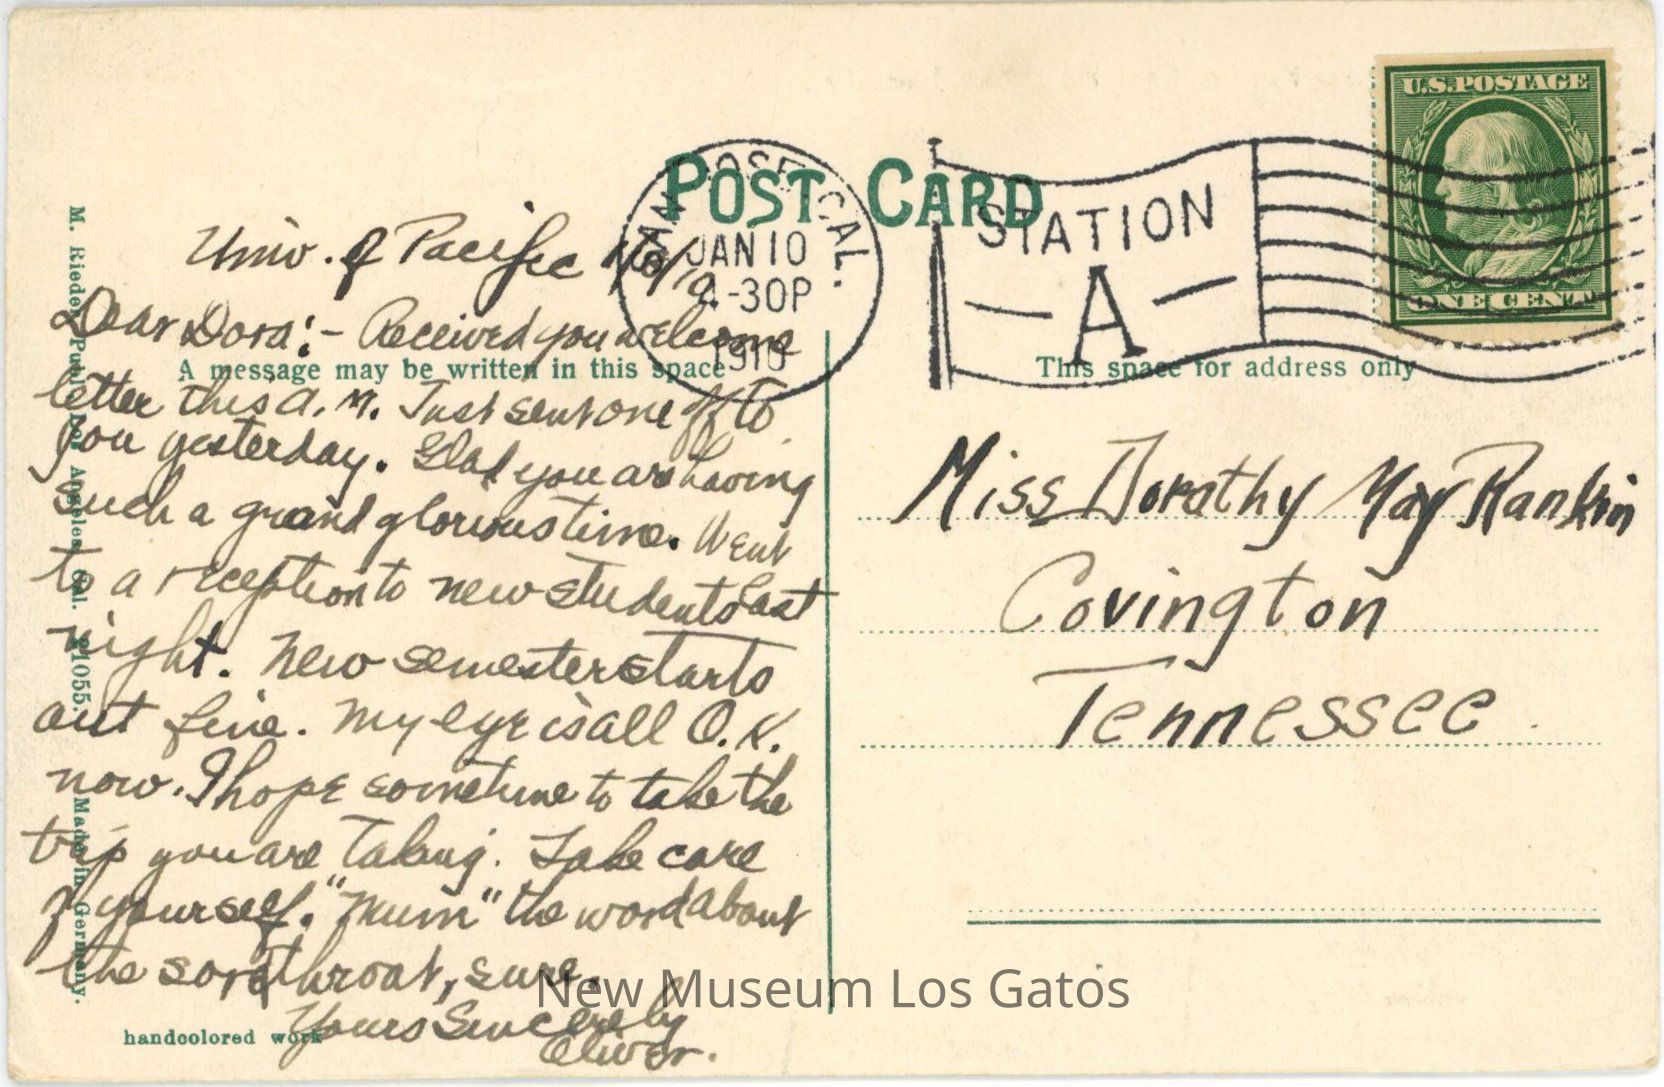 POST CARD
SAN JOSE, CAL.
JAN 10
4-30P
1910
STATION
A
U.S. POSTAGE
ONE CENT
A message may be written in this space
This space for address only
Univ. of Pacific 1/10/10.
Dear Dora:- Received you welcome
letter this a.m. Just sent one off to
you yesterday. Glad you are having
such a grand glorious time. Went
to a reception to new students last
night. New semester starts
out fine. My eye is all O.K.
now. I hope sometime to take the
trip you are taking. Take care
of yourself. "Mum" the word about
the sore throat, sure.
Yours Sincerely
Oliver.
Miss Dorothy May Rankin
Covington
Tennessee
M. Rieder, Publ., Los Angeles, Cal. 11055. Made in Germany.
handcolored work
New Museum Los Gatos